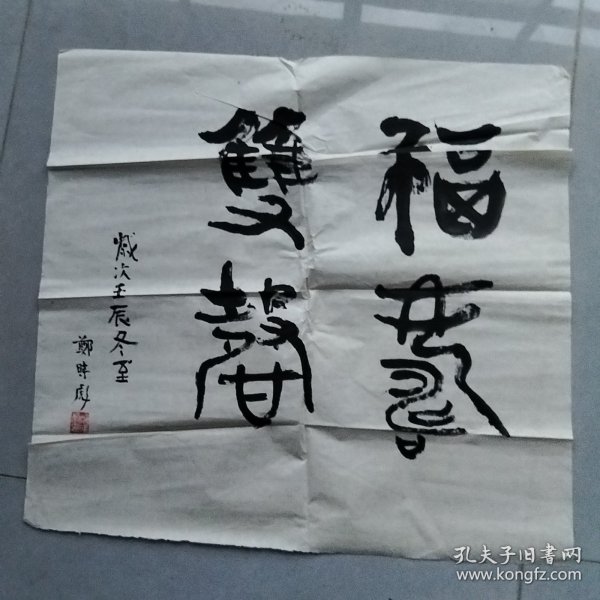 福壽
雙馨
歲次壬辰冬至
鄭
孔夫子旧書网
www.kongfz.com